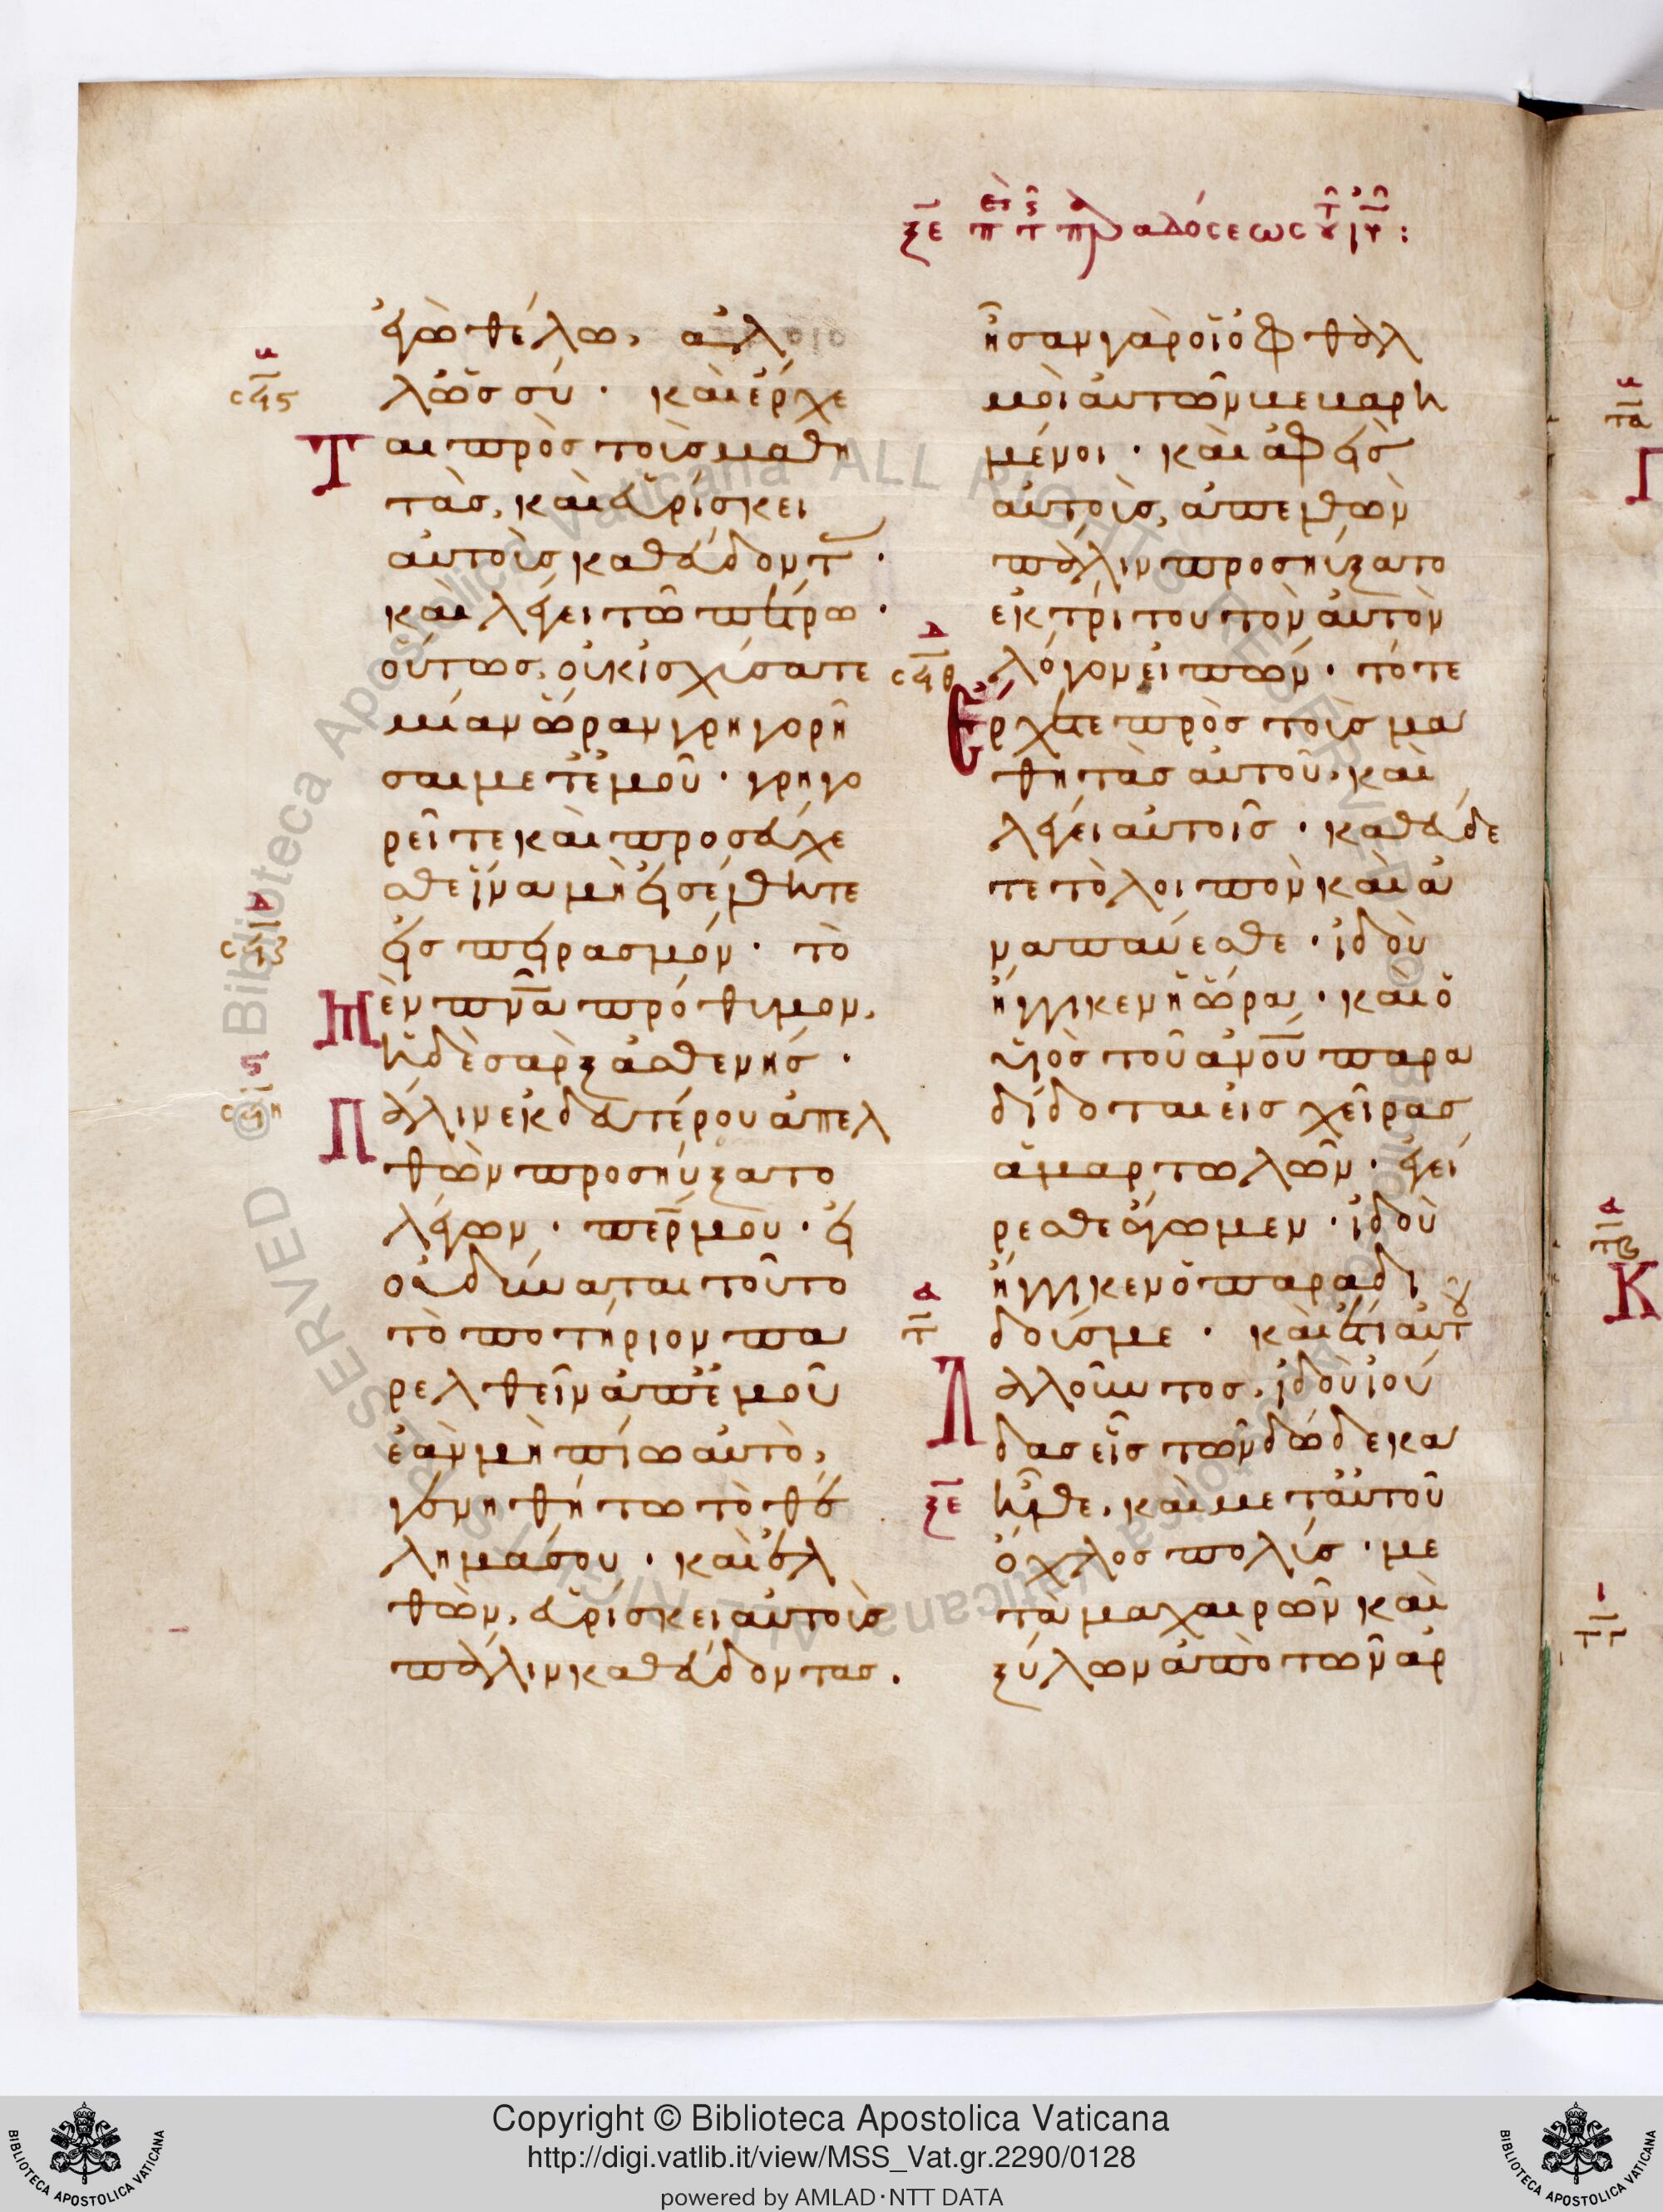 ξε περι της παραδόσεως του ιυ :
ἐγὼ θέλω, ἀλλ
λ ὡς σύ · καὶ ἔρχε
ται πρὸς τοὺς μαθη
τὰς, καὶ εὑρίσκει
αὐτοὺς καθεύδοντ ·
καὶ λέγει τῶ πέτρω ·
οὕτως, οὐκ ἰσχύσατε
μίαν ὥραν γρηγορῆ
σαι μετ ἐμοῦ · γρηγο
ρεῖτε καὶ προσεύχε
σθε ἵνα μὴ εἰσέλθητε
εἰς πειρασμόν · τὸ
μὲν πνα πρόθυμον,
ἡ δὲ σὰρξ ἀσθενής ·
Πάλιν ἐκ δευτέρου ἀπελ
θὼν προσηύξατο
λέγων · περ μου · εἰ
οὐ δύναται τοῦτο
τὸ ποτήριον πα
ρελθεῖν ἀπ ἐμοῦ
ἐὰν μὴ πίω αὐτὸ,
γενηθήτω τὸ θέ
λημα σου · καὶ ἐλ
θὼν, εὑρίσκει αὐτοὺς
πάλιν καθεύδοντας.
ἦσαν γὰρ οἱ ὀφθαλ
μοὶ αὐτῶν βεβαρη
μένοι · καὶ ἀφεὶς
αὐτοὺς, ἀπελθὼν
πάλιν προσηύξατο
ἐκ τρίτου τὸν αὐτὸν
λόγον εἰπών · τότε
Ἔρχεται πρὸς τοὺς μα
θητὰς αὐτοῦ, καὶ
λέγει αὐτοῖς · καθεύδε
τε τὸ λοιπὸν καὶ ἀ
ναπαύεσθε · ἰδοὺ
ἤγγικεν ἡ ὥρα · καὶ ὁ
υἱὸς τοῦ ανου παρα
δίδοται εἰς χεῖρας
ἁμαρτωλῶν · ἐγεί
ρεσθε ἄγωμεν · ἰδοὺ
ἤγγικεν ὁ παραδι
δούς με · καὶ ἔτι αὐτου
Λαλοῦντος, ἰδοὺ ἰού
δας εἷς τῶν δώδεκα
ξε ἦλθε, καὶ μετ αὐτοῦ
ὄχλος πολύς · με
τὰ μαχαιρῶν καὶ
ξύλων ἀπὸ τῶν ἀρ
Copyright © Biblioteca Apostolica Vaticana
http://digi.vatlib.it/view/MSS_Vat.gr.2290/0128
powered by AMLAD·NTT DATA
BIBLIOTECA APOSTOLICA VATICANA
BIBLIOTECA APOSTOLICA VATICANA